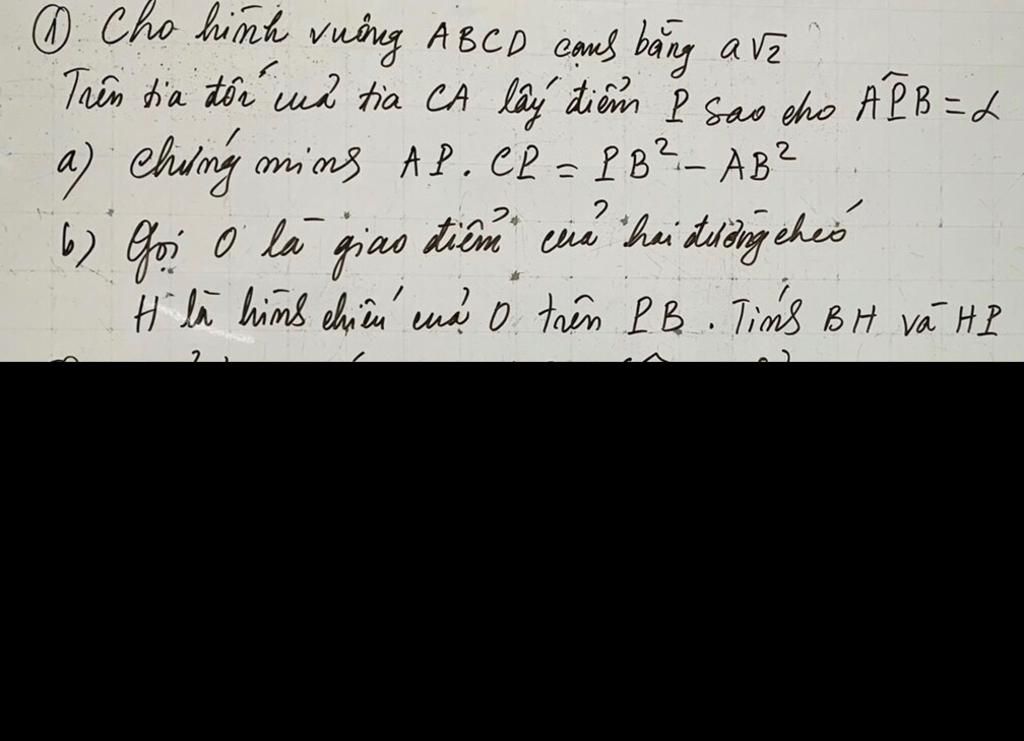 ① Cho hình vuông ABCD cạnh bằng a√2
Trên tia đối của tia CA lấy điểm P sao cho \widehat{APB} = α
a) Chứng minh AP . CP = PB² - AB²
b) Gọi O là giao điểm của hai đường chéo
H là hình chiếu của O trên PB . Tính BH và HP